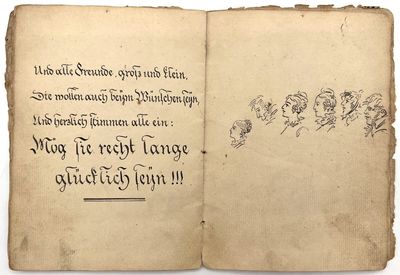 Und alle Freunde, groſs und klein,
Die wollen auch beÿm Wünſchen ſeÿn,
Und herzlich ſtimmen alle ein:
Mög ſie recht lange
glücklich ſeÿn !!!